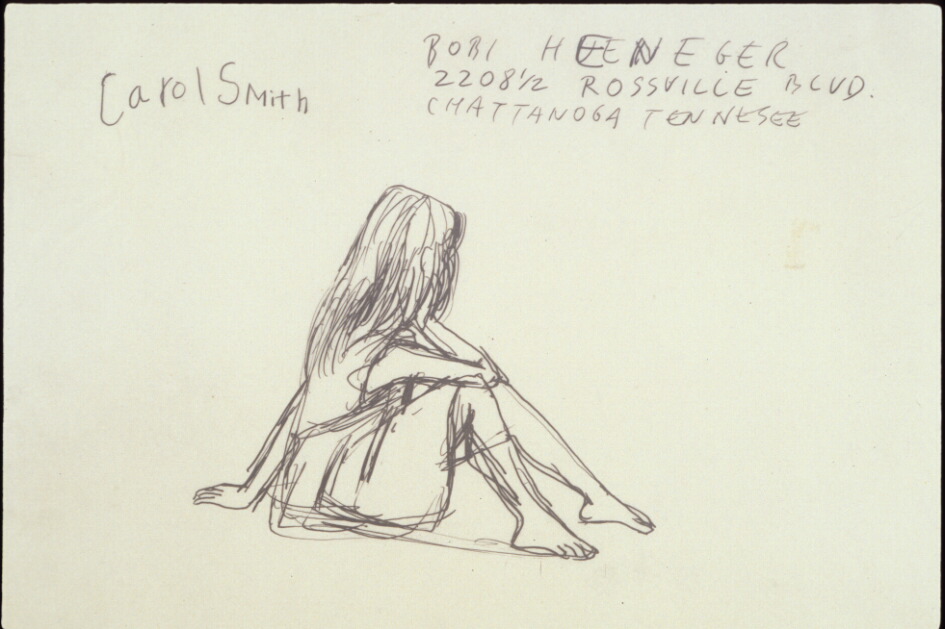 Carol Smith
BOBI HEENEGER
2208½ ROSSVILLE BLVD.
CHATTANOGA TENNESEE